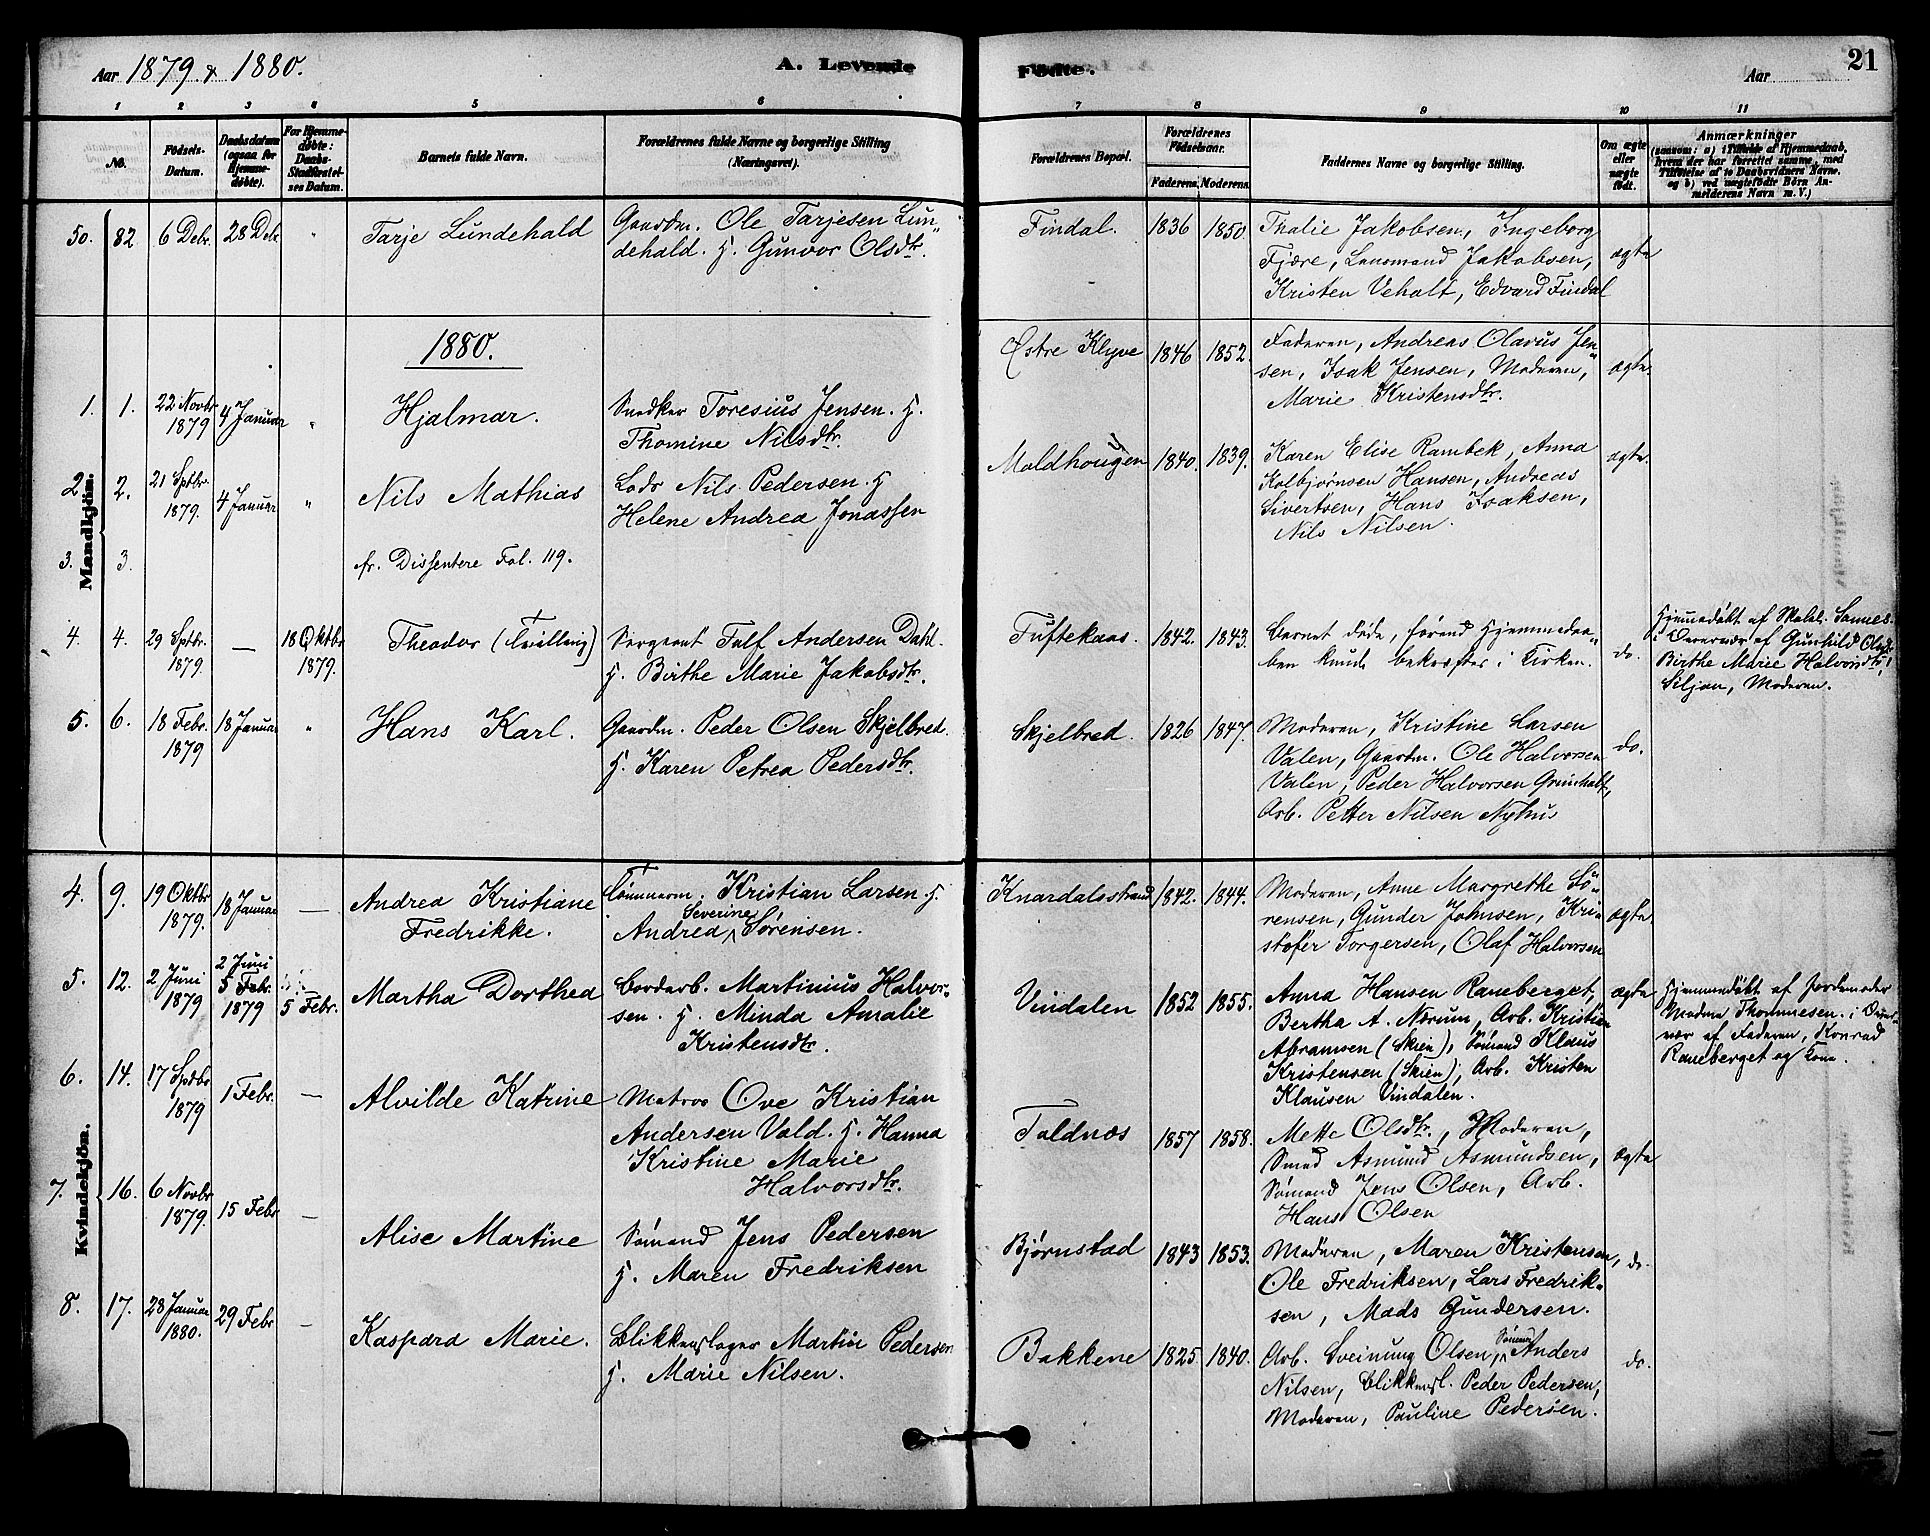 Aar 1879 & 1880.
A. Levende Fødte.
Aar 21
1 2 3 4 5 6 7 8 9 10 11
No.
Fødsels-
Datum.
Daabsdatum
(ogsaa for
Hjemme-
døbte).
For Hjemme-
døbte:
Daabs-
Stadfæstel-
ses Datum.
Barnets fulde Navn.
Forældrenes fulde Navne og borgerlige Stilling
(Næringsvei).
Forældrenes Bopæl.
Forældrenes
Fødselsaar.
Faderens. Moderens.
Faddernes Navne og borgerlige Stilling.
Om ægte
eller
uægte
født.
Anmærkninger
(saasom: a) i Tilfælde af Hjemmedaab,
hvem der har forrettet samme, med
Tilføielse af to Daabsvidners Navne,
og b) ved uægtefødte Børn An-
melderens Navn m. V.)
50. 82 6 Debr. 28 Debr. " Tarje Lundehald
Gaardm. Ole Tarjesen Lun-
dehald. H. Gunvor Olsdtr.
Findal. 1836 1850.
Thalie Jakobsen, Ingeborg
Fjære, Lensmand Jakobsen,
Kristen Vehalt, Edvard Findal
ægte
1880.
Mandkjön.
1. 1. 22 Novbr 1879 4 Januar " Hjalmar.
Snedker Toresius Jensen. H.
Thomine Nilsdtr.
Østre Klyve 1846 1852.
Faderen, Andreas Olavus Jen-
sen, Isak Jensen, Moderen,
Marie Kristensdtr.
ægte.
2. 2. 21 Sptbr. 1879. 4 Januar " Nils Mathias
Lods Nils Pedersen. H
Helene Andrea Jonassen
Moldhougen 1840. 1839.
Karen Elise Rambek, Anna
Kolbjørnsen Hansen, Andreas
Sivertsen, Hans Isaksen,
Nils Nilsen.
ægte.
3. 3. fr. Dissentere Fol. 119.
4. 4. 29 Sptbr. 1879. — 18 Oktbr 1879. Theodor (Tvilling)
Sergeant Tulf Andersen Dahl.
H. Birthe Marie Jakobsdtr.
Tuftekaas. 1842. 1843.
Barnet døde, førend Hjemmedaa-
ben kunde bekræftes i Kirken.
do.
Hjemmedøbt af Skolel. Sannes.
i Overvær af Gunhild Olsdtr
Birthe Marie Halvorsdtr,
Siljan, Moderen.
5. 6. 18 Febr. 1879 18 Januar " Hans Karl.
Gaardm. Peder Olsen Skjelbred.
H. Karen Petrea Pedersdtr.
Skjelbred. 1826 1847.
Moderen, Kristine Larsen
Valen, Gaardm. Ole Halvorsen
Valen, Peder Halvorsen Grinihalt,
Arb. Petter Nilsen Nyhus
do.
Kvindekjön.
4. 9. 19 Oktbr 1879. 18 Januar — Andrea Kristiane
Fredrikke.
Tømmerm. Kristian Larsen. H.
Andrea Severine Sørensen.
Knardalsstrand 1842. 1844.
Moderen, Anne Margrethe Sø-
rensen, Gunder Johnsen, Kri-
stofer Torgersen, Olaf Halvorsen
ægte
5. 12. 2 Juni 1879 2 Juni 5 Febr. 1879 5 Febr. Martha Dorthea
Bordarb. Martinius Halvor-
sen. H. Minda Amalie
Kristensdtr.
Vindalen 1852 1855.
Anna Hansen Raneberget,
Bertha A. Nærum, Arb. Kristian
Abramsen (Skien), Sømand Klaus
Kristensen (Skien), Arb. Kristen
Klausen Vindalen.
ægte
Hjemmedøbt af Jordemoder
Madme Thommesen. i Over-
vær af Faderen, Konrad
Raneberget og Kone.
6. 14. 17 Sptbr 1879 1 Febr. — Alvilde Katrine
Matros Ove Kristian
Andersen Vold. H. Hanna
Kristine Marie
Halvorsdtr.
Foldnæs 1857 1858.
Mette Olsdtr., Moderen,
Smed Asmund Asmundsen,
Sømand Jens Olsen, Arb.
Hans Olsen
ægte
7. 16. 6 Novbr 1879. 15 Febr — Alise Martine
Sømand Jens Pedersen
H. Maren Fredriksen
Bjørnstad 1843 1853.
Moderen, Maren Kristensen,
Ole Fredriksen, Lars Fredrik-
sen, Mads Gundersen.
do.
8. 17. 28 Januar 1880. 29 Febr — Kaspara Marie.
Blikkenslager Martin Pedersen
H. Marie Nilsen.
Bakkene 1825 1840.
Arb. Sveinung Olsen, Sømand Anders
Nilsen, Blikkensl. Peder Pedersen,
Moderen, Pauline Pedersen.
do.